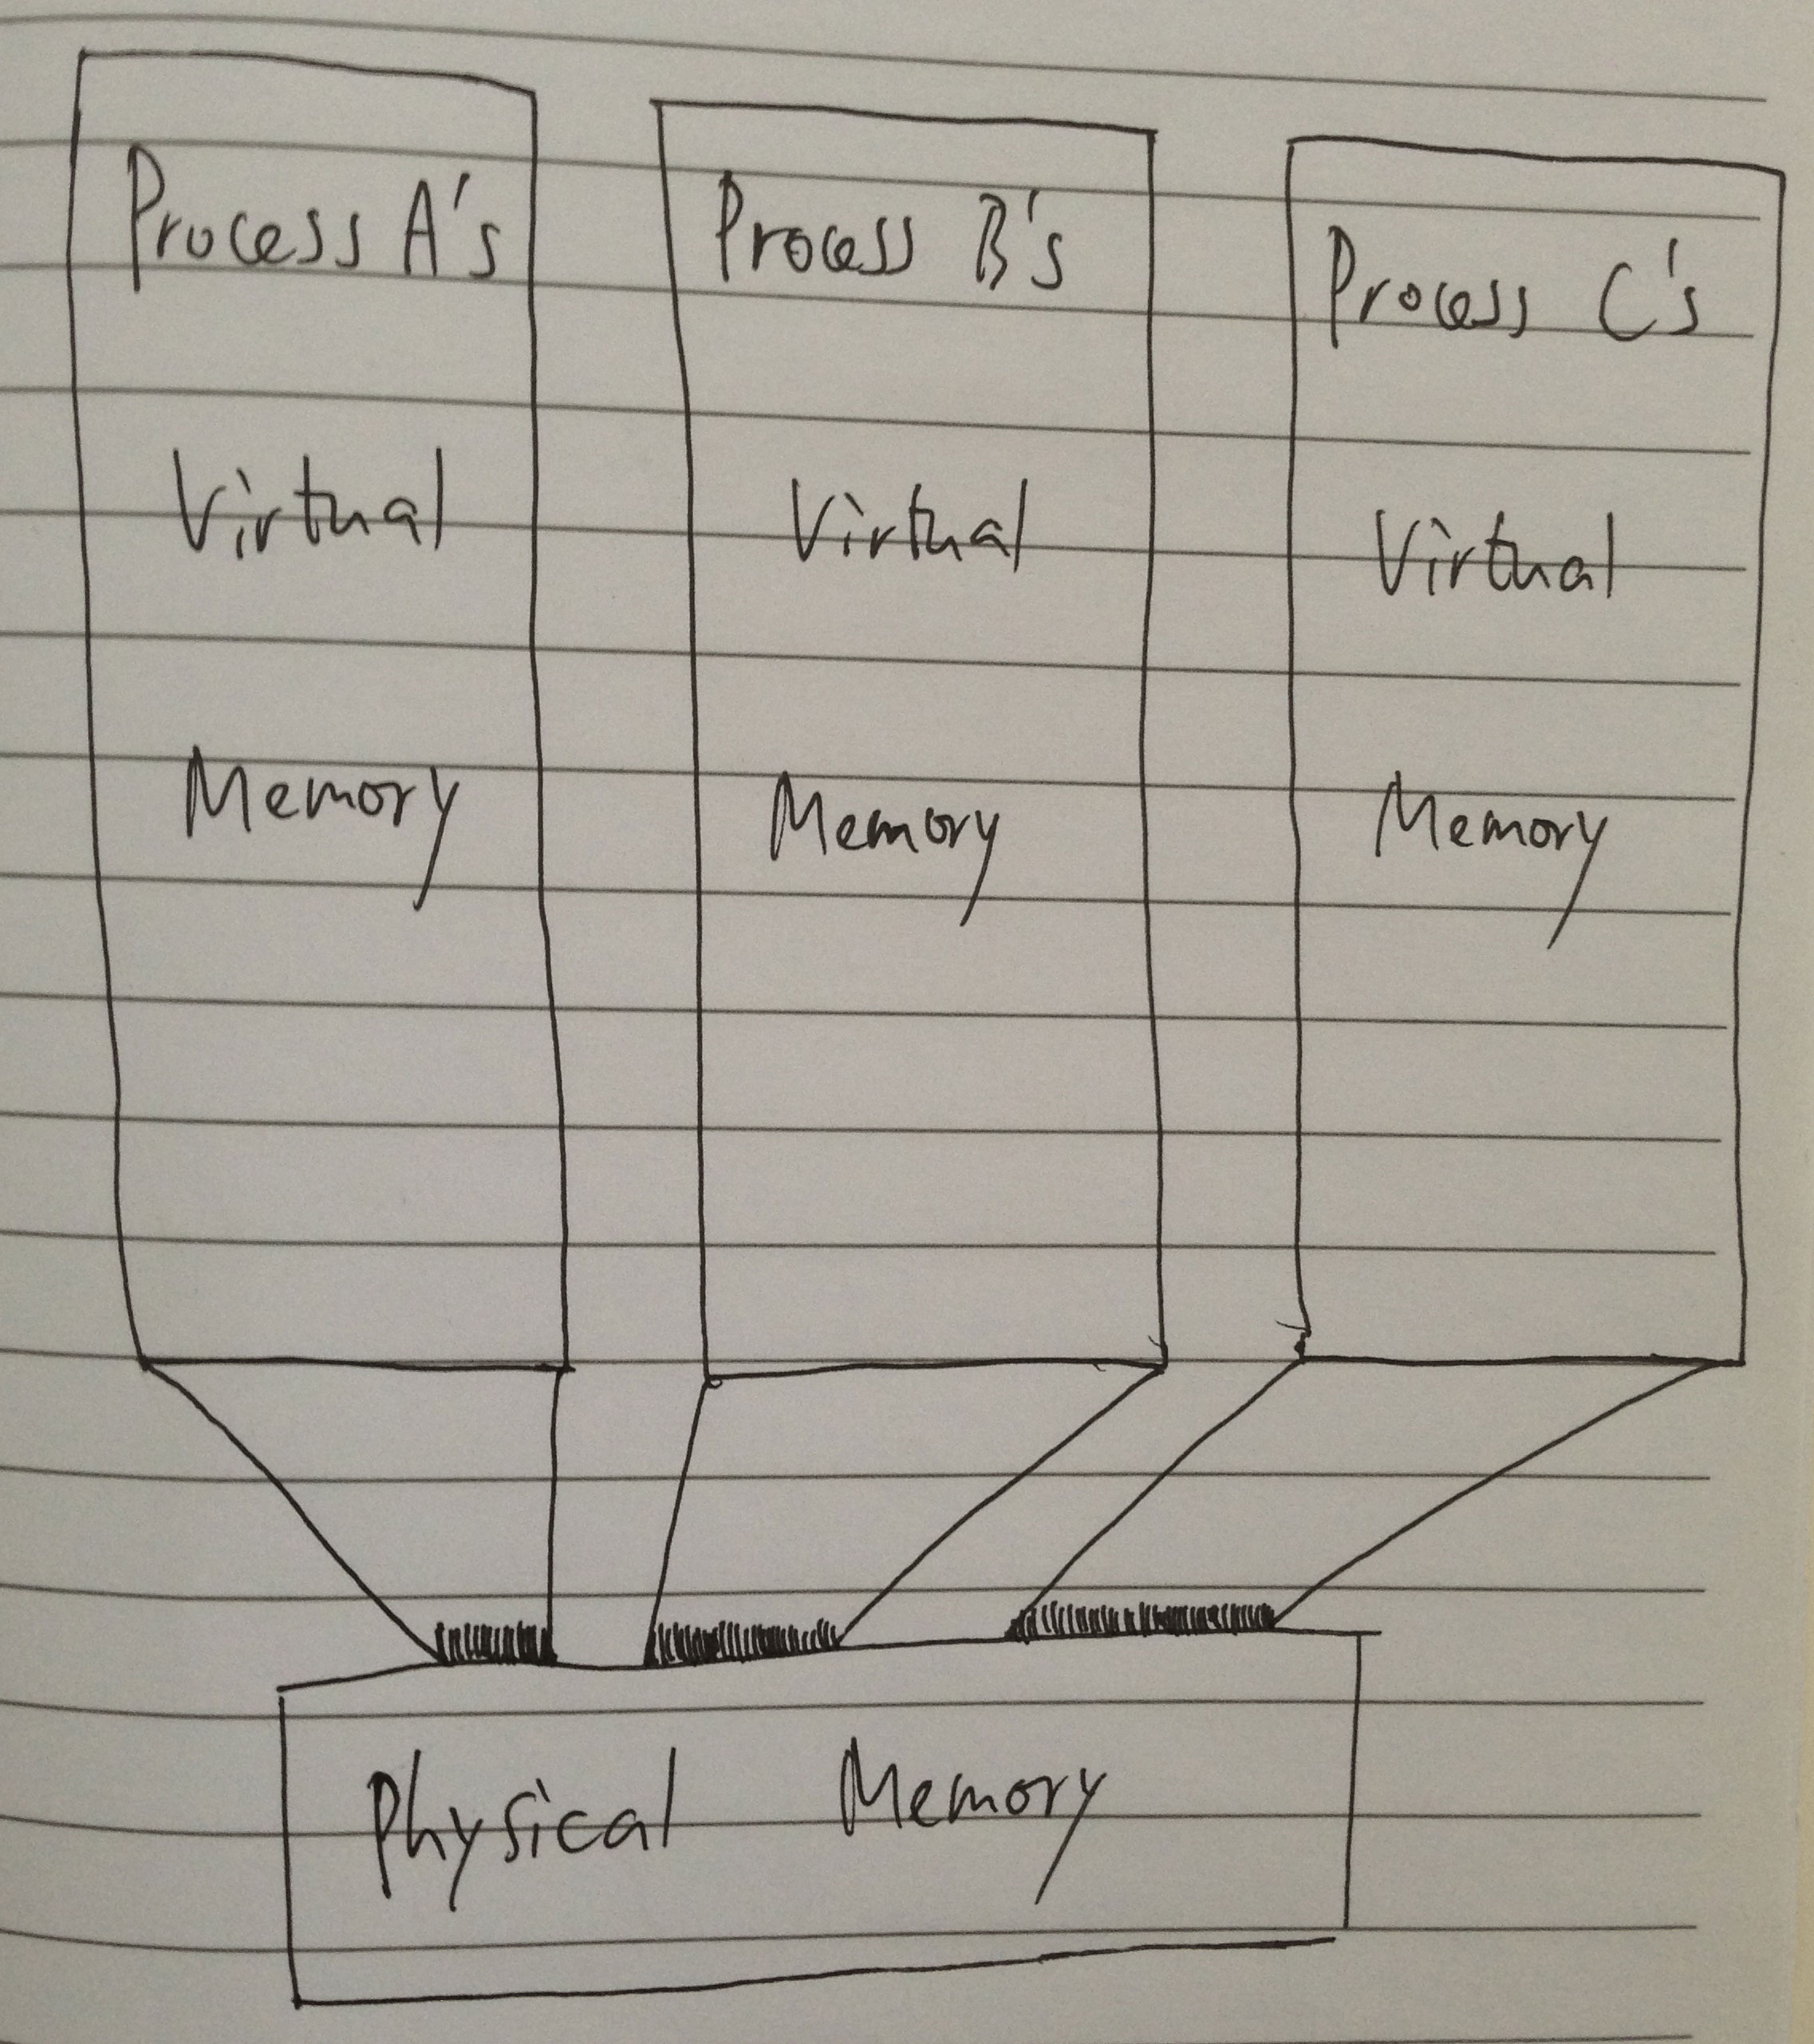 Process A's
Virtual
Memory
Process B's
Virtual
Memory
Process C's
Virtual
Memory
Physical Memory